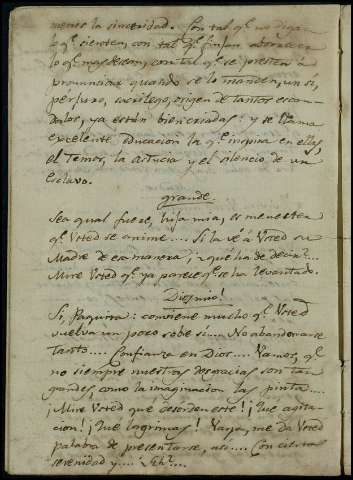 menos la sinceridad. Con tal qe. no digan
lo qe. sienten, con tal qe. finjan aborrecer
lo qe. mas desean, con tal qe. se presten à
pronunciar quando se lo manden, un si,
perjuro, sacrilego, origen de tantos escan-
dalos, ya estàn bien criadas: y se llama
excelente educacion la qe. inspira en ellas,
el temor, la astucia y el silencio de un
esclavo.
grande.
Sea qual fuese, hija mia, es menester
qe. Usted se anime.... Si la vé à Usted su
Madre de esa manera, ¿que ha de decir?...
Mire Usted qe. ya parece qe. se ha levantado.
Dios mio!
Si, Paquita: conviene mucho qe. Usted
vuelva un poco sobe si.... No abandonarse
tanto.... Confianza en Dios.... Vamos, qe.
no siempre nuestras desgracias son tan
grandes, como la imaginacion las pinta....
¡Mire Usted que desorden este! ¡Que agita-
cion! ¡Que lagrimas! Vaya, me da Usted
palabra de presentarse, asi.... Con cierta
serenidad y....